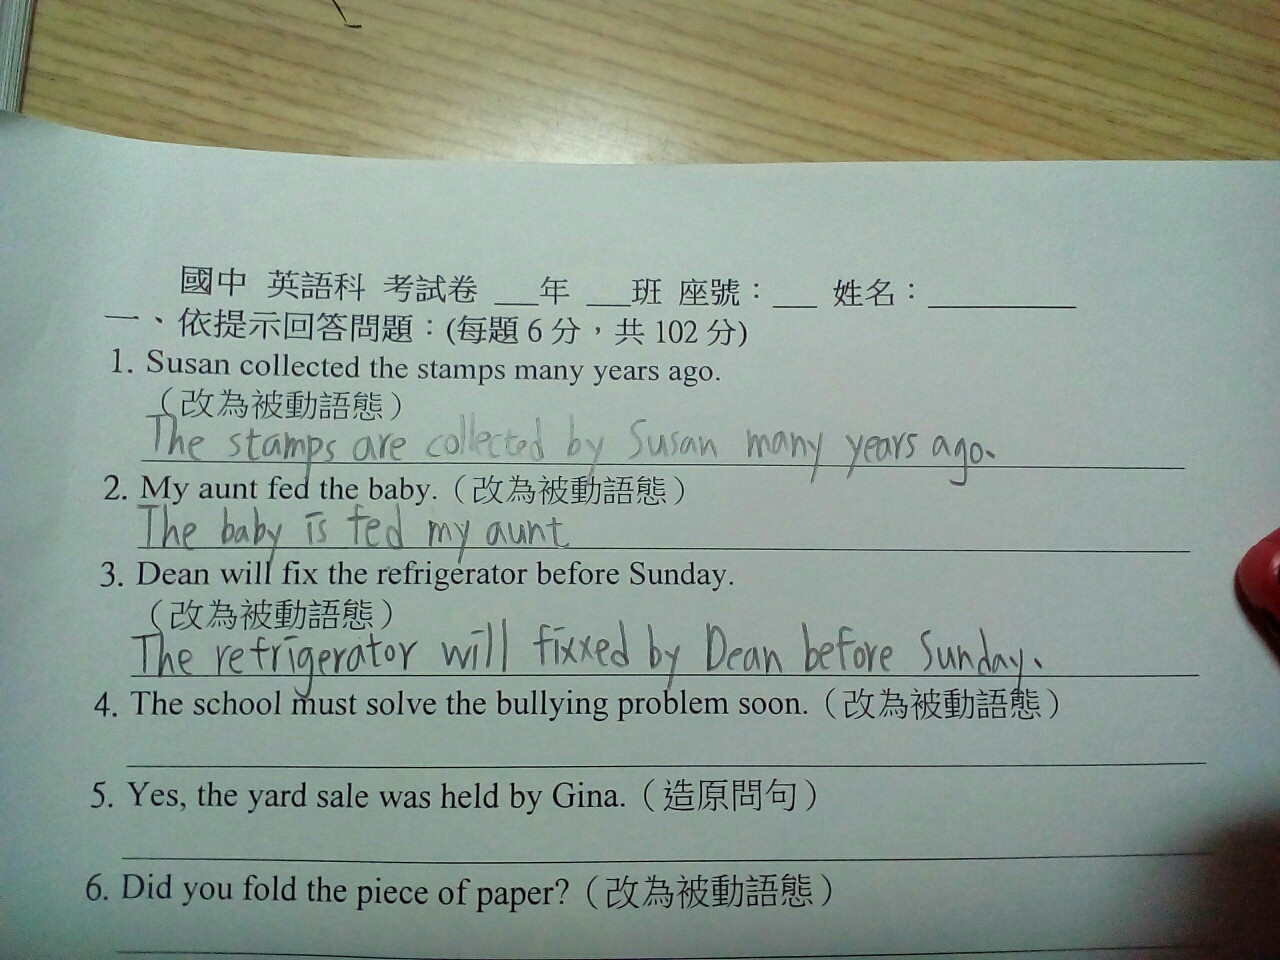 國中 英語科 考試卷 ___年 ___班 座號：___ 姓名：__________
一、依提示回答問題：(每題 6 分，共 102 分)
1. Susan collected the stamps many years ago.
（改為被動語態）
The stamps are collected by Susan many years ago.
2. My aunt fed the baby.（改為被動語態）
The baby is fed my aunt
3. Dean will fix the refrigerator before Sunday.
（改為被動語態）
The refrigerator will fixxed by Dean before Sunday.
4. The school must solve the bullying problem soon.（改為被動語態）
5. Yes, the yard sale was held by Gina.（造原問句）
6. Did you fold the piece of paper?（改為被動語態）